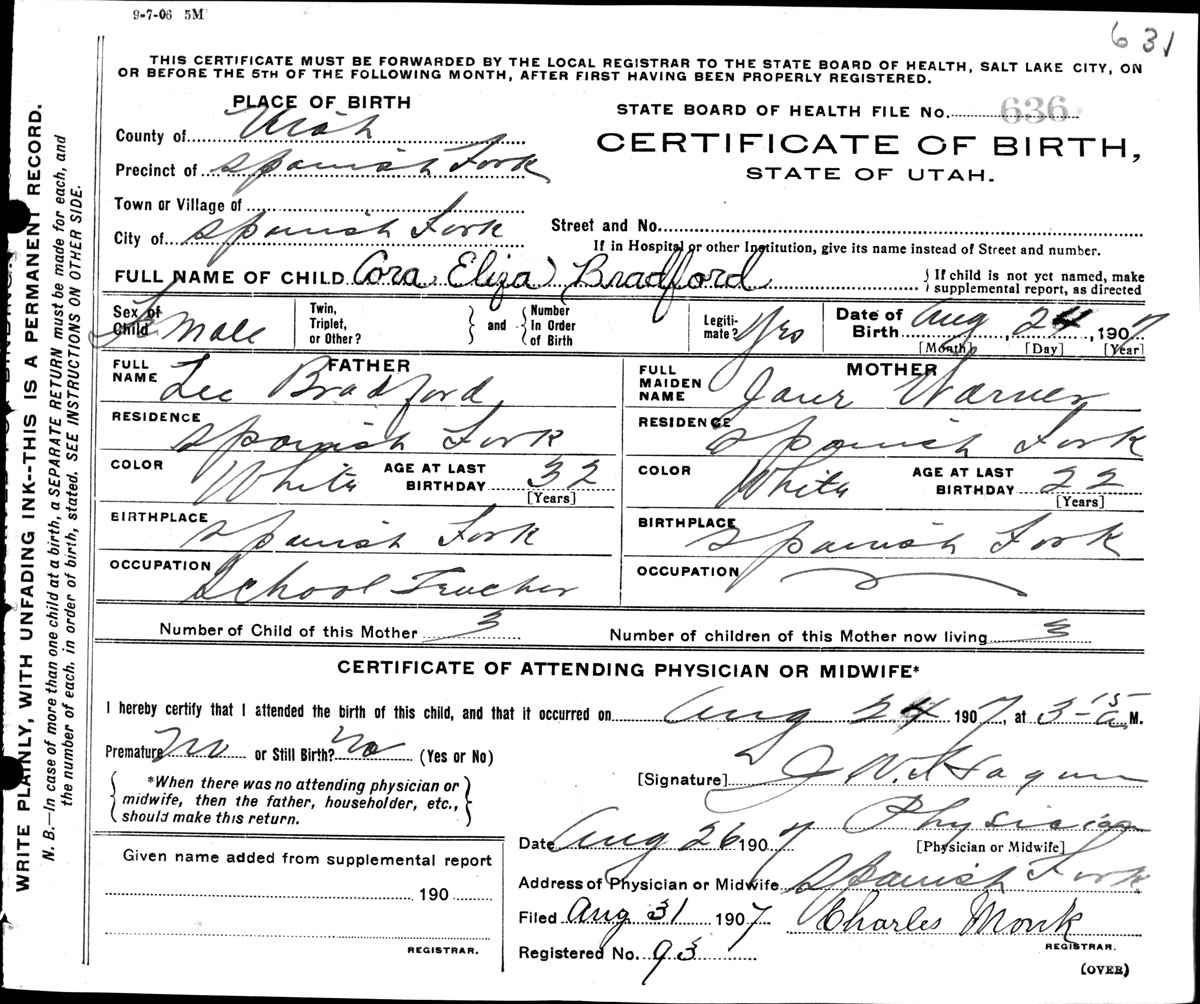 9-7-06 5M
631
THIS CERTIFICATE MUST BE FORWARDED BY THE LOCAL REGISTRAR TO THE STATE BOARD OF HEALTH, SALT LAKE CITY, ON
OR BEFORE THE 5TH OF THE FOLLOWING MONTH, AFTER FIRST HAVING BEEN PROPERLY REGISTERED.
PLACE OF BIRTH
County of Utah
Precinct of Spanish Fork
Town or Village of
City of Spanish Fork
STATE BOARD OF HEALTH FILE No. 636
CERTIFICATE OF BIRTH,
STATE OF UTAH.
Street and No.
If in Hospital or other Institution, give its name instead of Street and number.
FULL NAME OF CHILD Cora Eliza Bradford { If child is not yet named, make
supplemental report, as directed
Sex of Child Female
Twin, Triplet, or Other?
and
Number In Order of Birth
Legitimate? Yes
Date of Birth Aug 24, 1907
[Month] [Day] [Year]
FATHER
FULL NAME Lee Bradford
RESIDENCE Spanish Fork
COLOR White AGE AT LAST BIRTHDAY 32
[Years]
BIRTHPLACE Spanish Fork
OCCUPATION School Teacher
MOTHER
FULL MAIDEN NAME Jane Warner
RESIDENCE Spanish Fork
COLOR White AGE AT LAST BIRTHDAY 22
[Years]
BIRTHPLACE Spanish Fork
OCCUPATION
Number of Child of this Mother 3 Number of children of this Mother now living 3
CERTIFICATE OF ATTENDING PHYSICIAN OR MIDWIFE*
I hereby certify that I attended the birth of this child, and that it occurred on Aug 24 1907, at 3-15 a M.
Premature? No or Still Birth? No (Yes or No)
*When there was no attending physician or
midwife, then the father, householder, etc.,
should make this return.
[Signature] J W
Physician
[Physician or Midwife]
Date Aug 26 1907
Address of Physician or Midwife Spanish Fork
Filed Aug 31 1907 Charles Monk
REGISTRAR.
Registered No. 93
(OVER)
Given name added from supplemental report
190
REGISTRAR.
WRITE PLAINLY, WITH UNFADING INK--THIS IS A PERMANENT RECORD.
N. B.—In case of more than one child at a birth, a SEPARATE RETURN must be made for each, and
the number of each, in order of birth, stated. SEE INSTRUCTIONS ON OTHER SIDE.